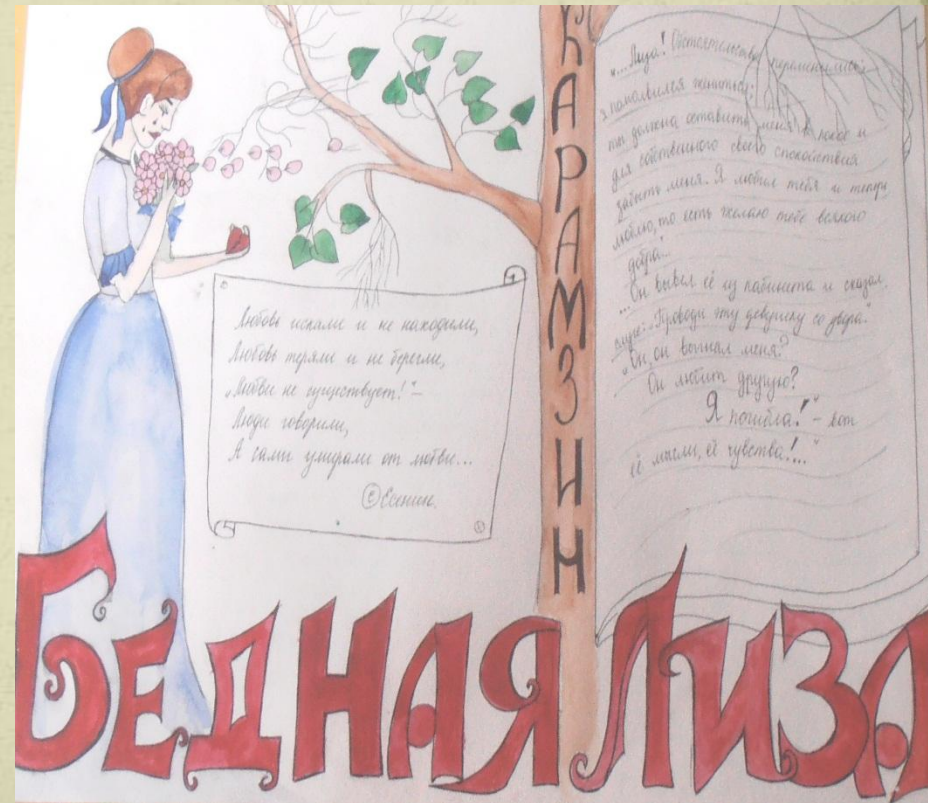 Любовь искали и не находили,
Любовь теряли и не берегли,
„Любви не существует!“ –
Люди говорили,
А сами умирали от любви...
©Есенин.
КАРАМЗИН
„...Лиза! Обстоятельства переменились
я помолвился жениться;
ты должна оставить меня в покое и
для собственного своего спокойствия
забыть меня. Я любил тебя и теперь
люблю, то есть желаю тебе всякого
добра“...
...Он вывел её из кабинета и сказал
слуге: „Проводи эту девушку со двора“
„Он, он выгнал меня?
Он любит другую?
Я погибла!“ – вот
её мысли, её чувства!..."
БЕДНАЯ ЛИЗА